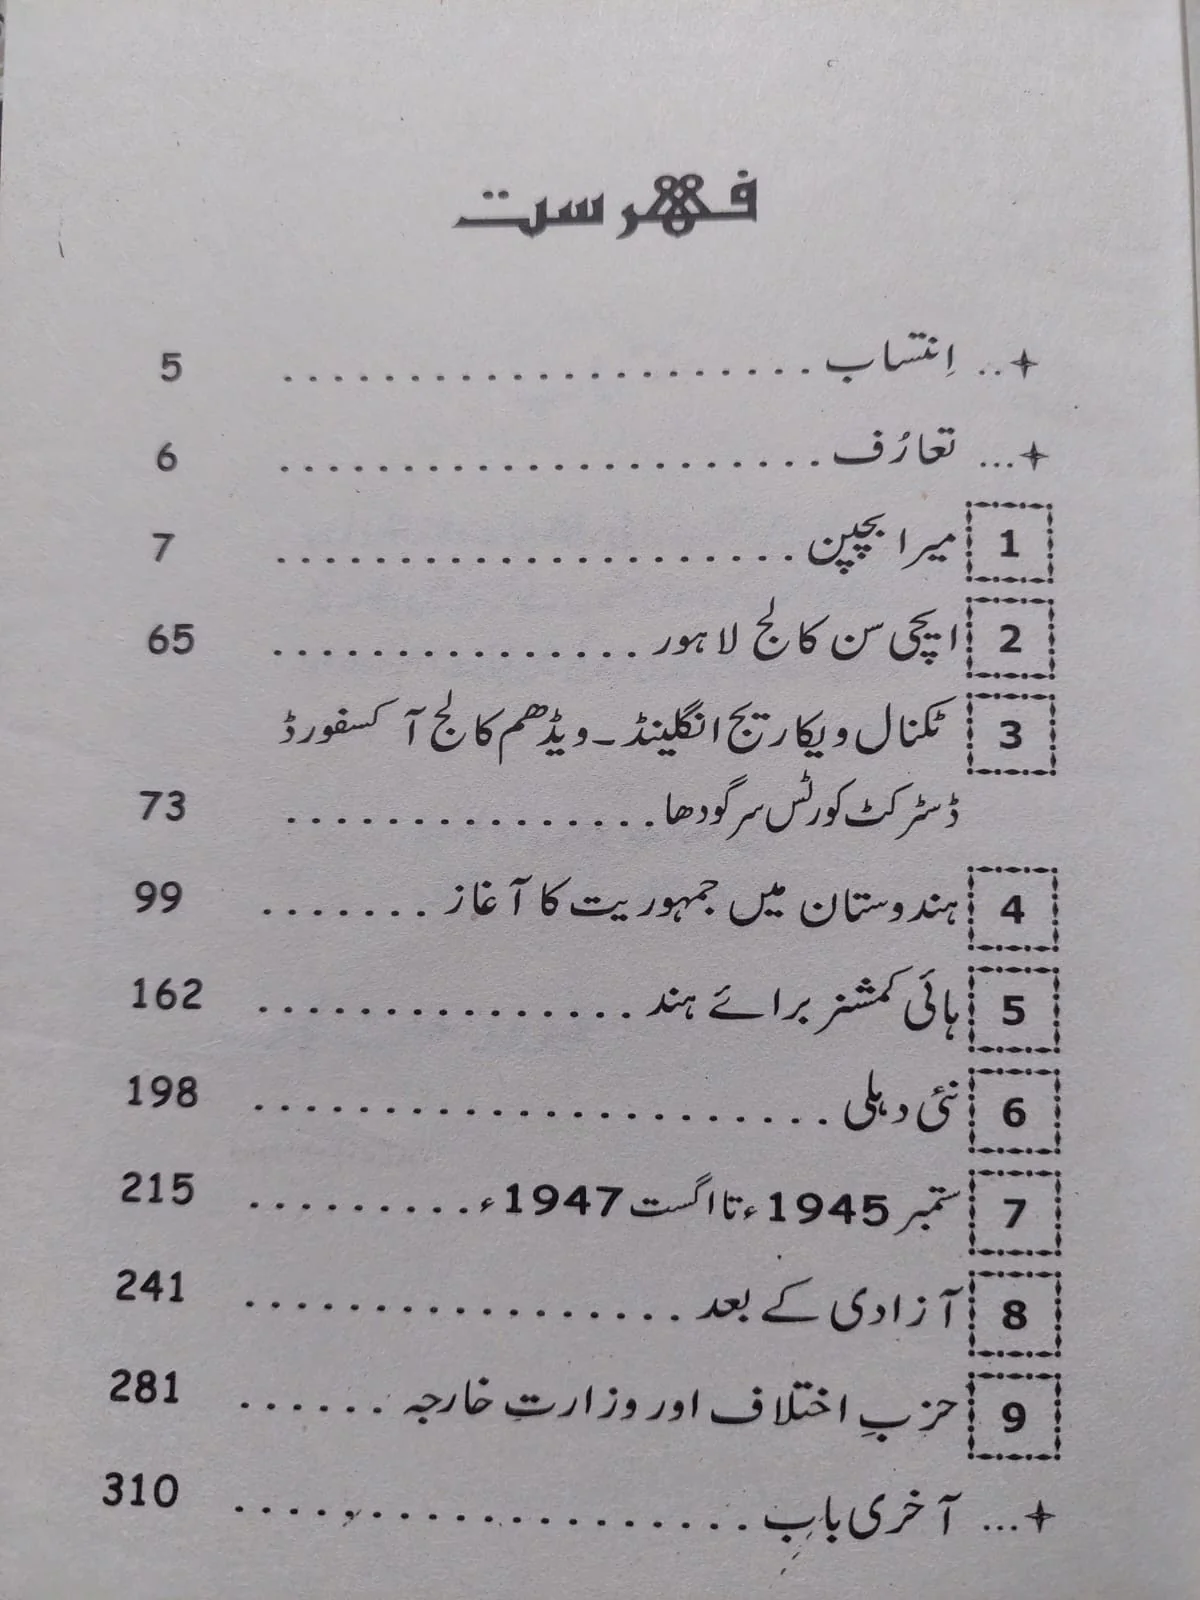 فہرست
انتساب ..................... 5
تعارُف ..................... 6
1 میرا بچپن ..................... 7
2 ایچی سن کالج لاہور ................ 65
3 ٹکنال ویکاریج انگلینڈ۔ ویڈھم کالج آکسفورڈ
ڈسٹرکٹ کورٹس سرگودھا ................ 73
4 ہندوستان میں جمہوریت کا آغاز ....... 99
5 ہائی کمشنر برائے ہند ................ 162
6 نئی دہلی ........................ 198
7 ستمبر 1945ء تا اگست 1947ء .......... 215
8 آزادی کے بعد .................. 241
9 حزبِ اختلاف اور وزارتِ خارجہ ....... 281
آخری باب ..................... 310